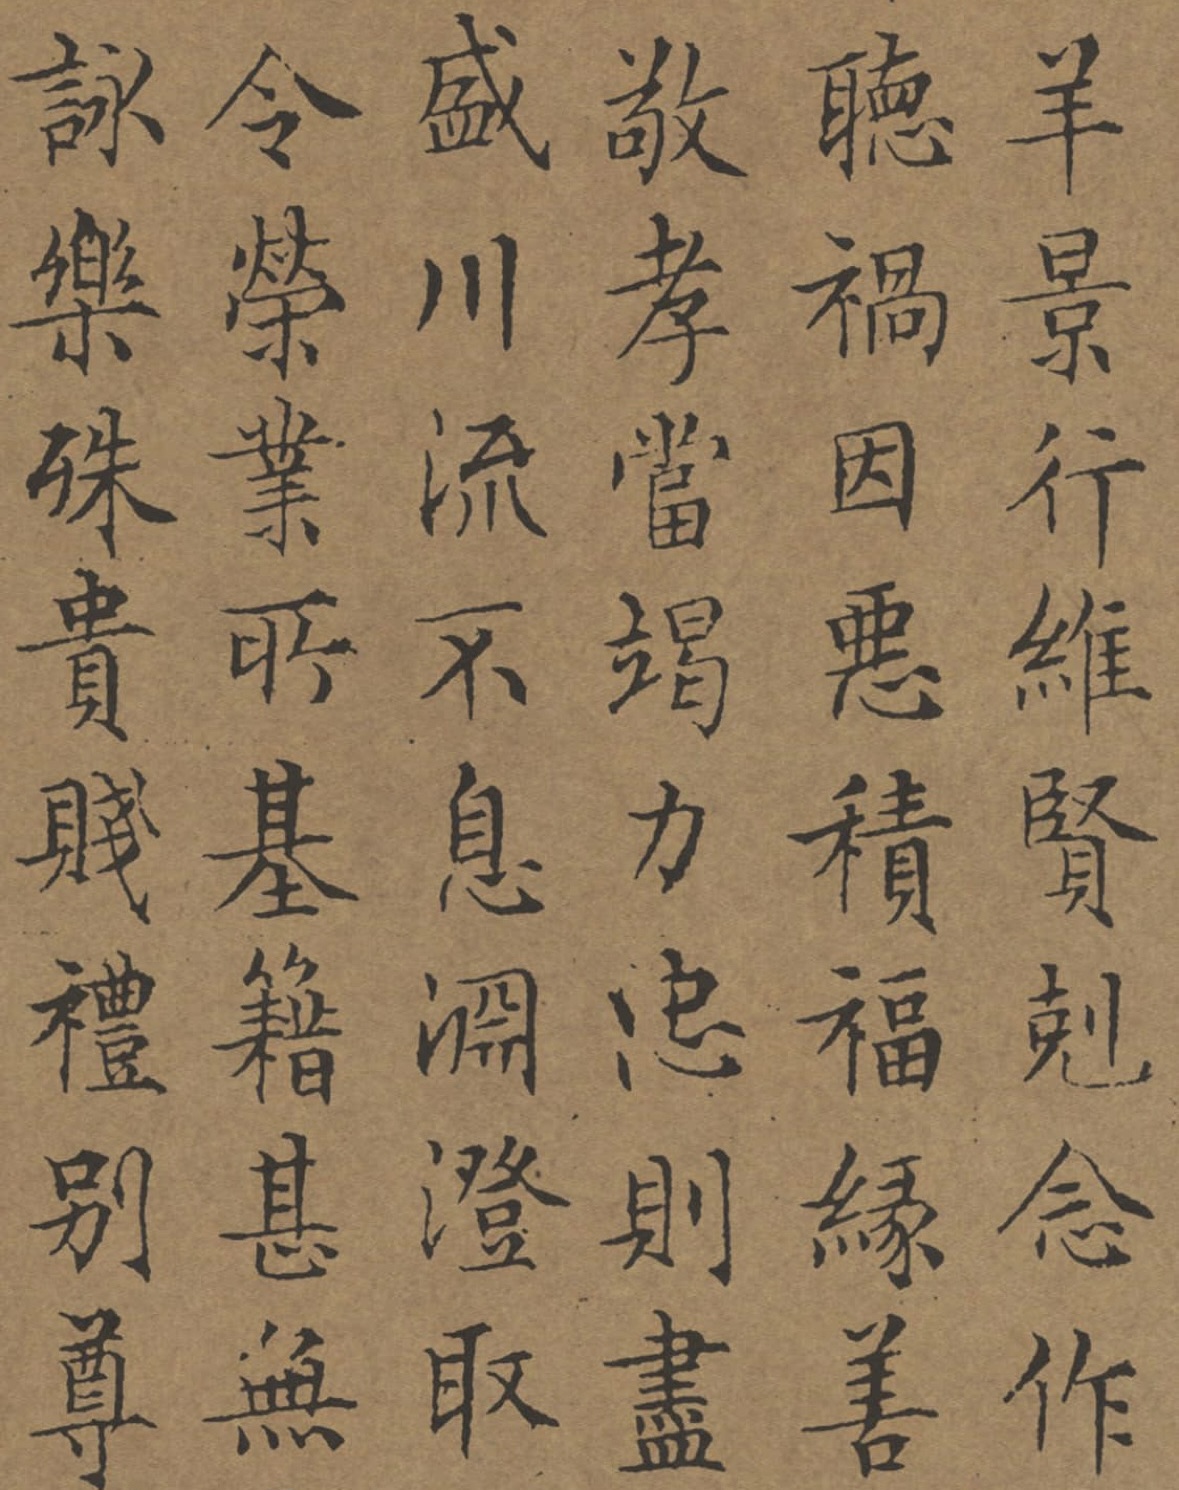 羊景行維賢剋念作
聽禍因惡積福緣善
敬孝當竭力忠則盡
盛川流不息淵澄取
令榮業所基籍甚無
詠樂殊貴賤禮別尊